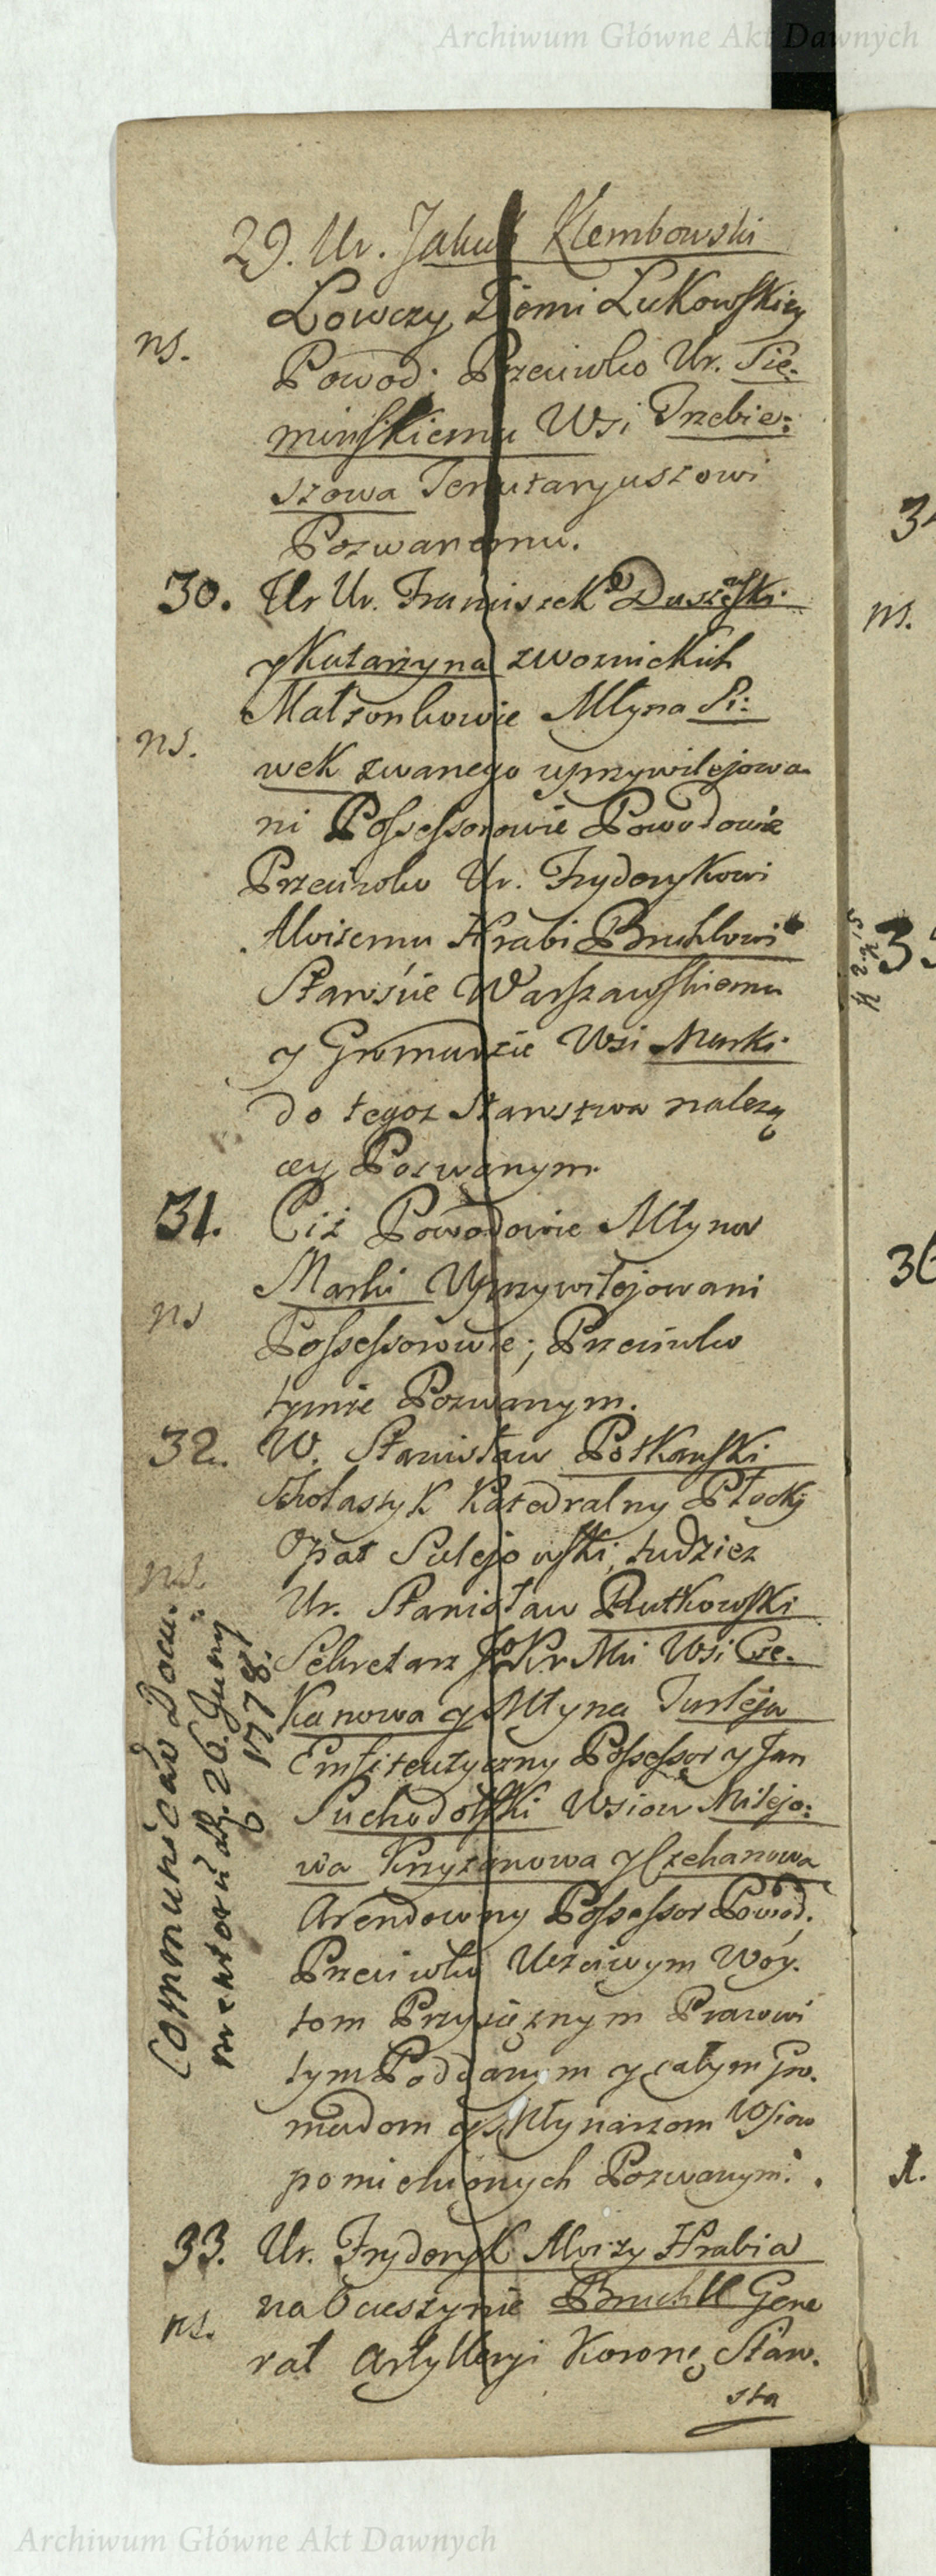 Archiwum Główne Akt Dawnych
29. Ur. Jakub Klembowski
Łowczy Ziemi Łukowskiey
ns.
Powod: Przeciwko Ur. Sie-
minskiemu Wsi Trzebie:
szowa Tenutaryuszowi
Pozwanemu.
30. Ur Ur. Franciszek Duszeski
y Katarzyna zwoznickich
Małzonkowie Młyna Si:
ns.
wek zwanego uprzywilejowa-
ni Possessorowie Powodowie
Przeciwko Ur. Fryderykowi
Aloisemu Hrabi Bruhlowi
Starościie Warszawskiemu
y Gromadzie Wsi Marki
do tegoz Starostwa nalezą
cey Pozwanym
31. Ciż Powodowie Młyna
Marki Uprzywilejowani
ns
Possessorowie; Przeciwko
tymże Pozwanym.
32. W. Stanisław Potkanski
Scholastyk Katedralny Płocky
Opat Sulejowski, tudziez
ns.
Ur. Stanisław Rutkowski
Sekretarz JoKr Mci Wsi Ce-
kanowa y Młyna Turleja
Emfiteutyczny Possessor y Jan
Suchodolski Wsiow Milejo:
wa Krzyzanowa y Czekanowa
Arendowny Possessor Powod.
Przeciwko Uczciwym Woy-
tom Przysiężnym Pracowi
tym Poddanym y całym Gro-
madom y Młynarzom Wsiow
pomienionych Pozwanym.
Communicat: Docu:
mentorum 26 Juny
1778.
33. Ur. Fryderyk Aloizy Hrabia
na Ocieszynie Bruhll Gene
ns.
rał Artylleryi Koronę Staro-
sta
34
ns.
35
36
Archiwum Główne Akt Dawnych